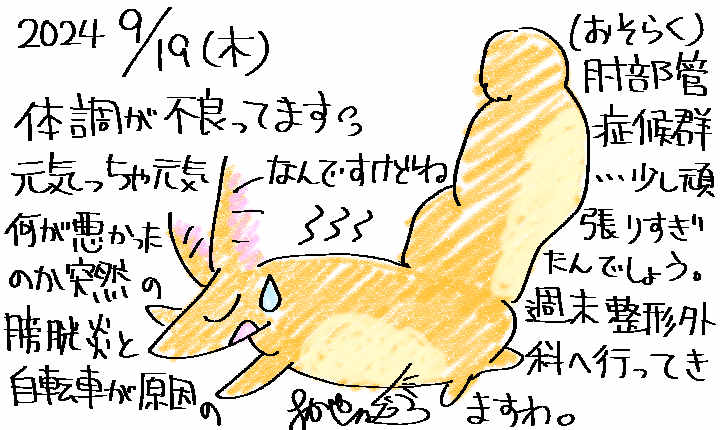 2024 9/19(木)
体調が不良ってます
元気っちゃ元気
なんですけどね
何が悪かった
のか突然の
膀胱炎と
自転車が原因の
(おそらく)
肘部管
症候群
…少し頑
張りすぎ
たんでしょう。
週末整形外
科へ行ってき
ますわ。